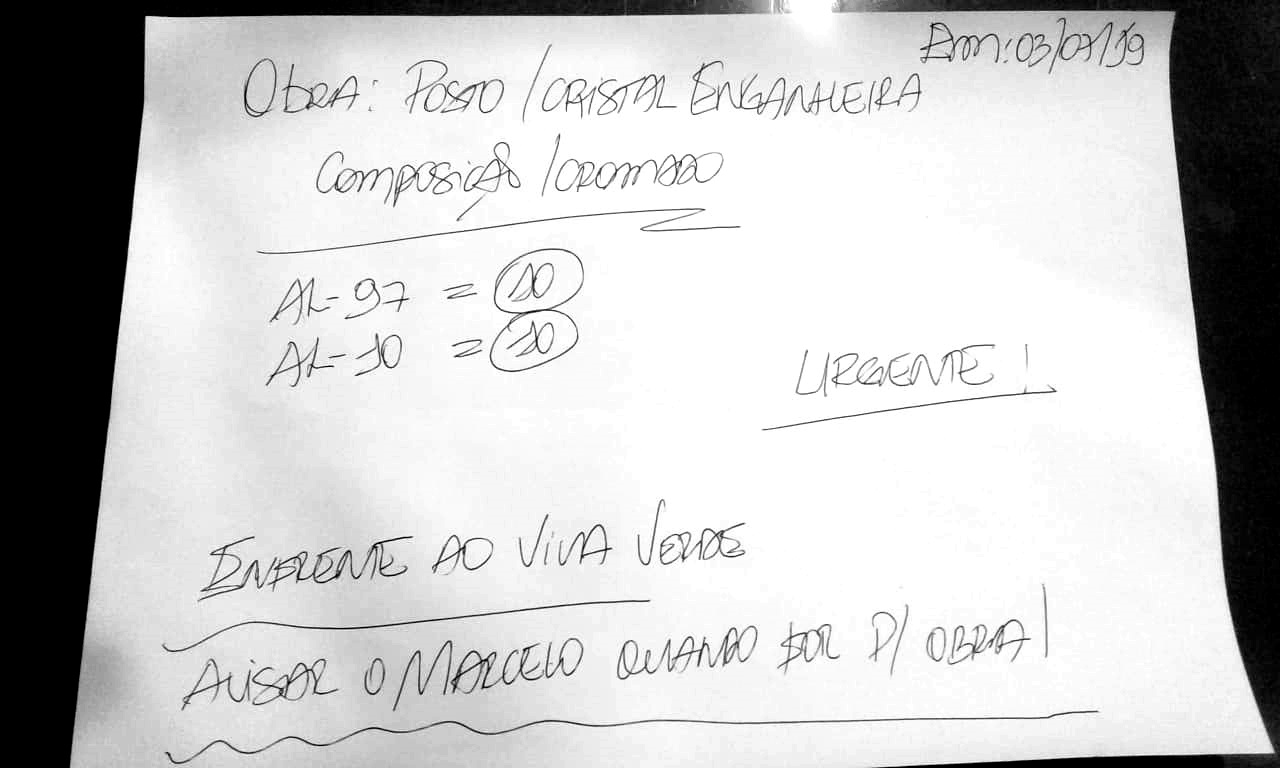 Em: 03/07/19
OBRA: POSTO / CRISTAL ENGANALEIRA
COMPOSIÇÃO / CROMADO
AL-97 = 10
AL-10 = 10
URGENTE!
ENFRENTE AO VIVA VERDE
AVISAR O MARCELO QUANDO FOR P/ OBRA!